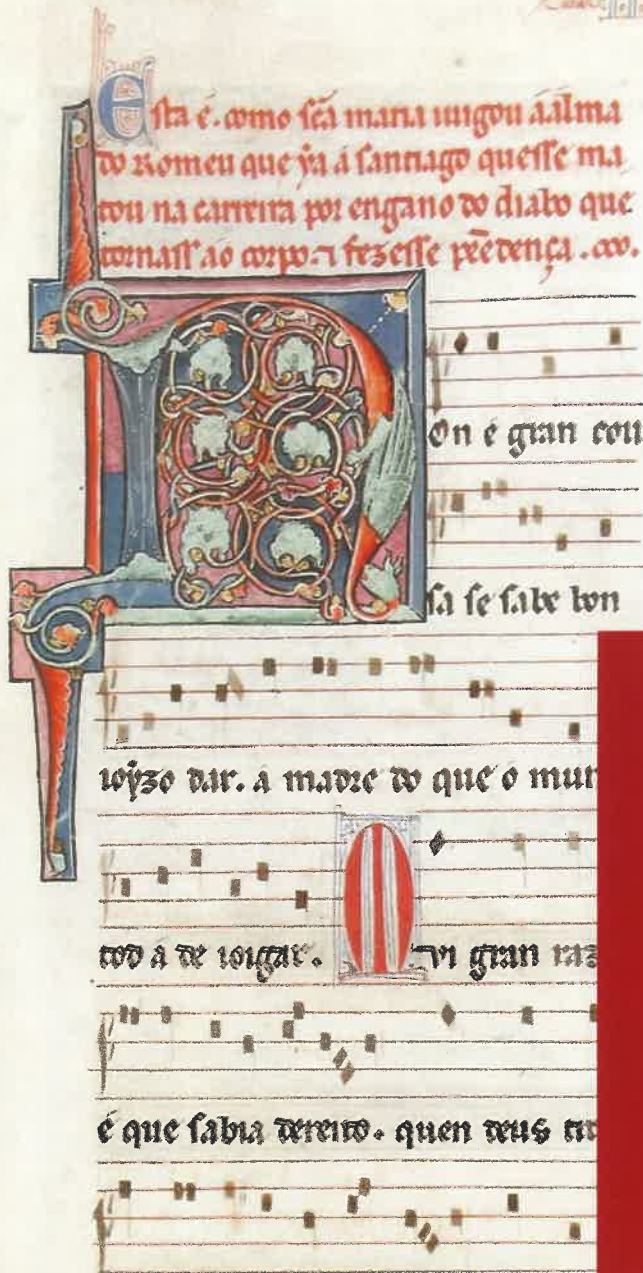 Esta é. como sc̃a maria iuigou a alma
do Romeu que ẏa a santiago quesse ma
tou na carreira por engano do diabo que
tornass ao corpo. ⁊ fezesse pẽedença.
Non é gran cou
sa se sabe bon
ioẏzo dar. a madre do que o mun
tod a de ioigar. Mui gran raz
é que sabia dereito. quen deus